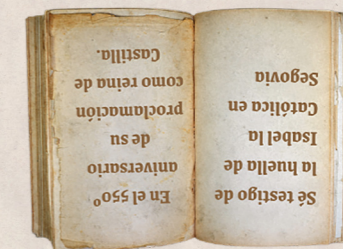 Sé testigo de
la huella de
Isabel la
Católica en
Segovia
En el 550º
aniversario
de su
proclamación
como reina de
Castilla.